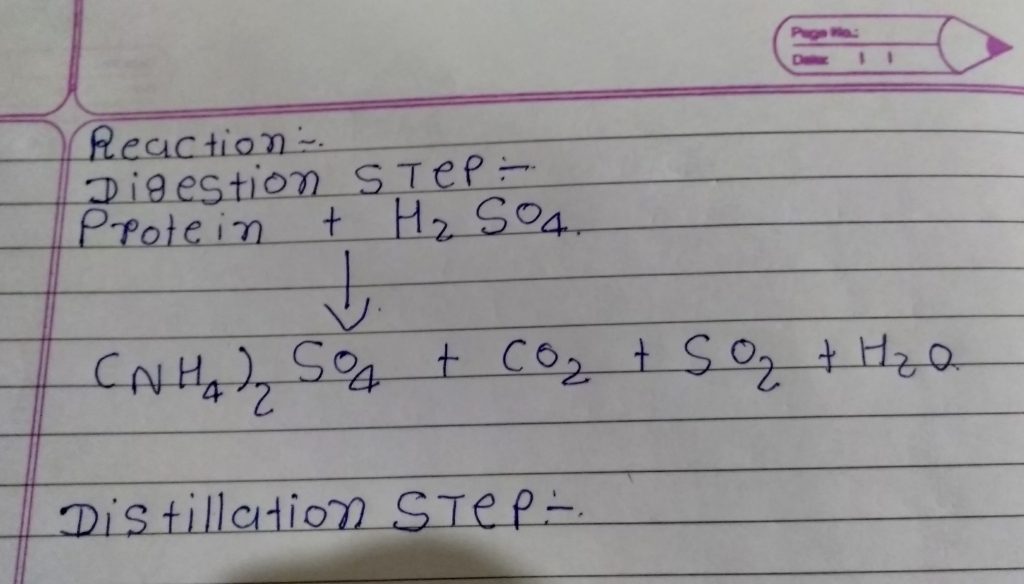 Page No.:
Date: / /
Reaction :-
Digestion STeP :-
Protein + H₂ SO₄.
↓
(NH₄)₂ SO₄ + CO₂ + SO₂ + H₂O.
Distillation STeP :-